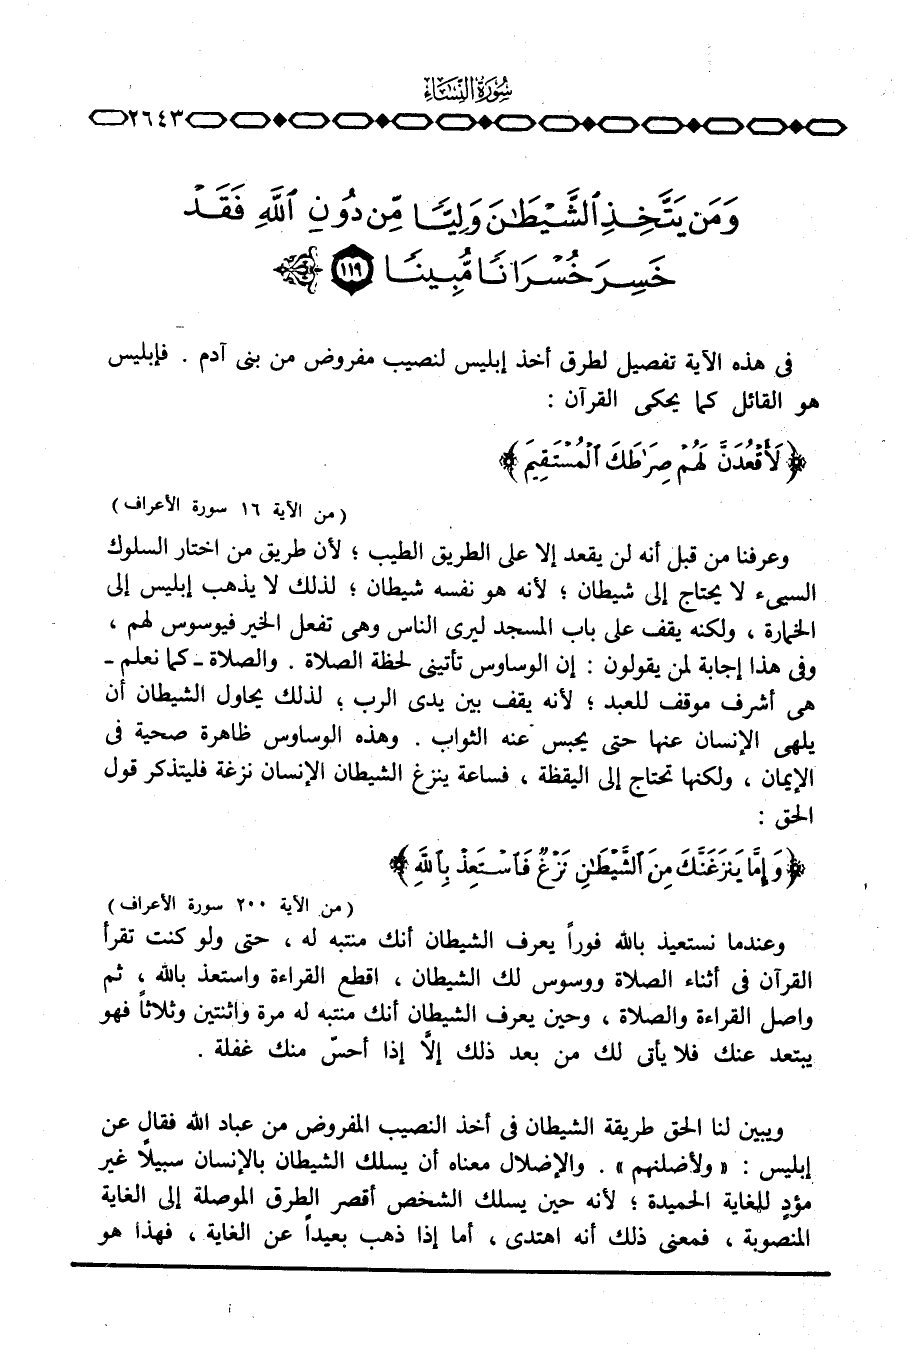 سُورَةُ النِّسَاءِ
٢٦٤٣
وَمَن يَتَّخِذِ ٱلشَّيْطَٰنَ وَلِيًّا مِّن دُونِ ٱللَّهِ فَقَدْ
خَسِرَ خُسْرَانًا مُّبِينًا ١١٩
فى هذه الآية تفصيل لطرق أخذ إبليس لنصيب مفروض من بنى آدم . فإبليس
هو القائل كما يحكى القرآن :
﴿ لَأَقْعُدَنَّ لَهُمْ صِرَٰطَكَ ٱلْمُسْتَقِيمَ ﴾
( من الآية ١٦ سورة الأعراف )
وعرفنا من قبل أنه لن يقعد إلا على الطريق الطيب ؛ لأن طريق من اختار السلوك
السيىء لا يحتاج إلى شيطان ؛ لأنه هو نفسه شيطان ؛ لذلك لا يذهب إبليس إلى
الخمارة ، ولكنه يقف على باب المسجد ليرى الناس وهى تفعل الخير فيوسوس لهم ،
وفى هذا إجابة لمن يقولون : إن الوساوس تأتينى لحظة الصلاة . والصلاة ـ كما نعلم ـ
هى أشرف موقف للعبد ؛ لأنه يقف بين يدى الرب ؛ لذلك يحاول الشيطان أن
يلهى الإنسان عنها حتى يحبس عنه الثواب . وهذه الوساوس ظاهرة صحية فى
الإيمان ، ولكنها تحتاج إلى اليقظة ، فساعة ينزغ الشيطان الإنسان نزغة فليتذكر قول
الحق :
﴿ وَإِمَّا يَنزَغَنَّكَ مِنَ ٱلشَّيْطَٰنِ نَزْغٌ فَٱسْتَعِذْ بِٱللَّهِ ﴾
( من الآية ٢٠٠ سورة الأعراف )
وعندما نستعيذ بالله فوراً يعرف الشيطان أنك منتبه له ، حتى ولو كنت تقرأ
القرآن فى أثناء الصلاة ووسوس لك الشيطان ، اقطع القراءة واستعذ بالله ، ثم
واصل القراءة والصلاة ، وحين يعرف الشيطان أنك منتبه له مرة واثنتين وثلاثاً فهو
يبتعد عنك فلا يأتى لك من بعد ذلك إلَّا إذا أحسّ منك غفلة .
ويبين لنا الحق طريقة الشيطان فى أخذ النصيب المفروض من عباد الله فقال عن
إبليس : « ولأضلنهم » . والإضلال معناه أن يسلك الشيطان بالإنسان سبيلاً غير
مؤدٍ للغاية الحميدة ؛ لأنه حين يسلك الشخص أقصر الطرق الموصلة إلى الغاية
المنصوبة ، فمعنى ذلك أنه اهتدى ، أما إذا ذهب بعيداً عن الغاية ، فهذا هو